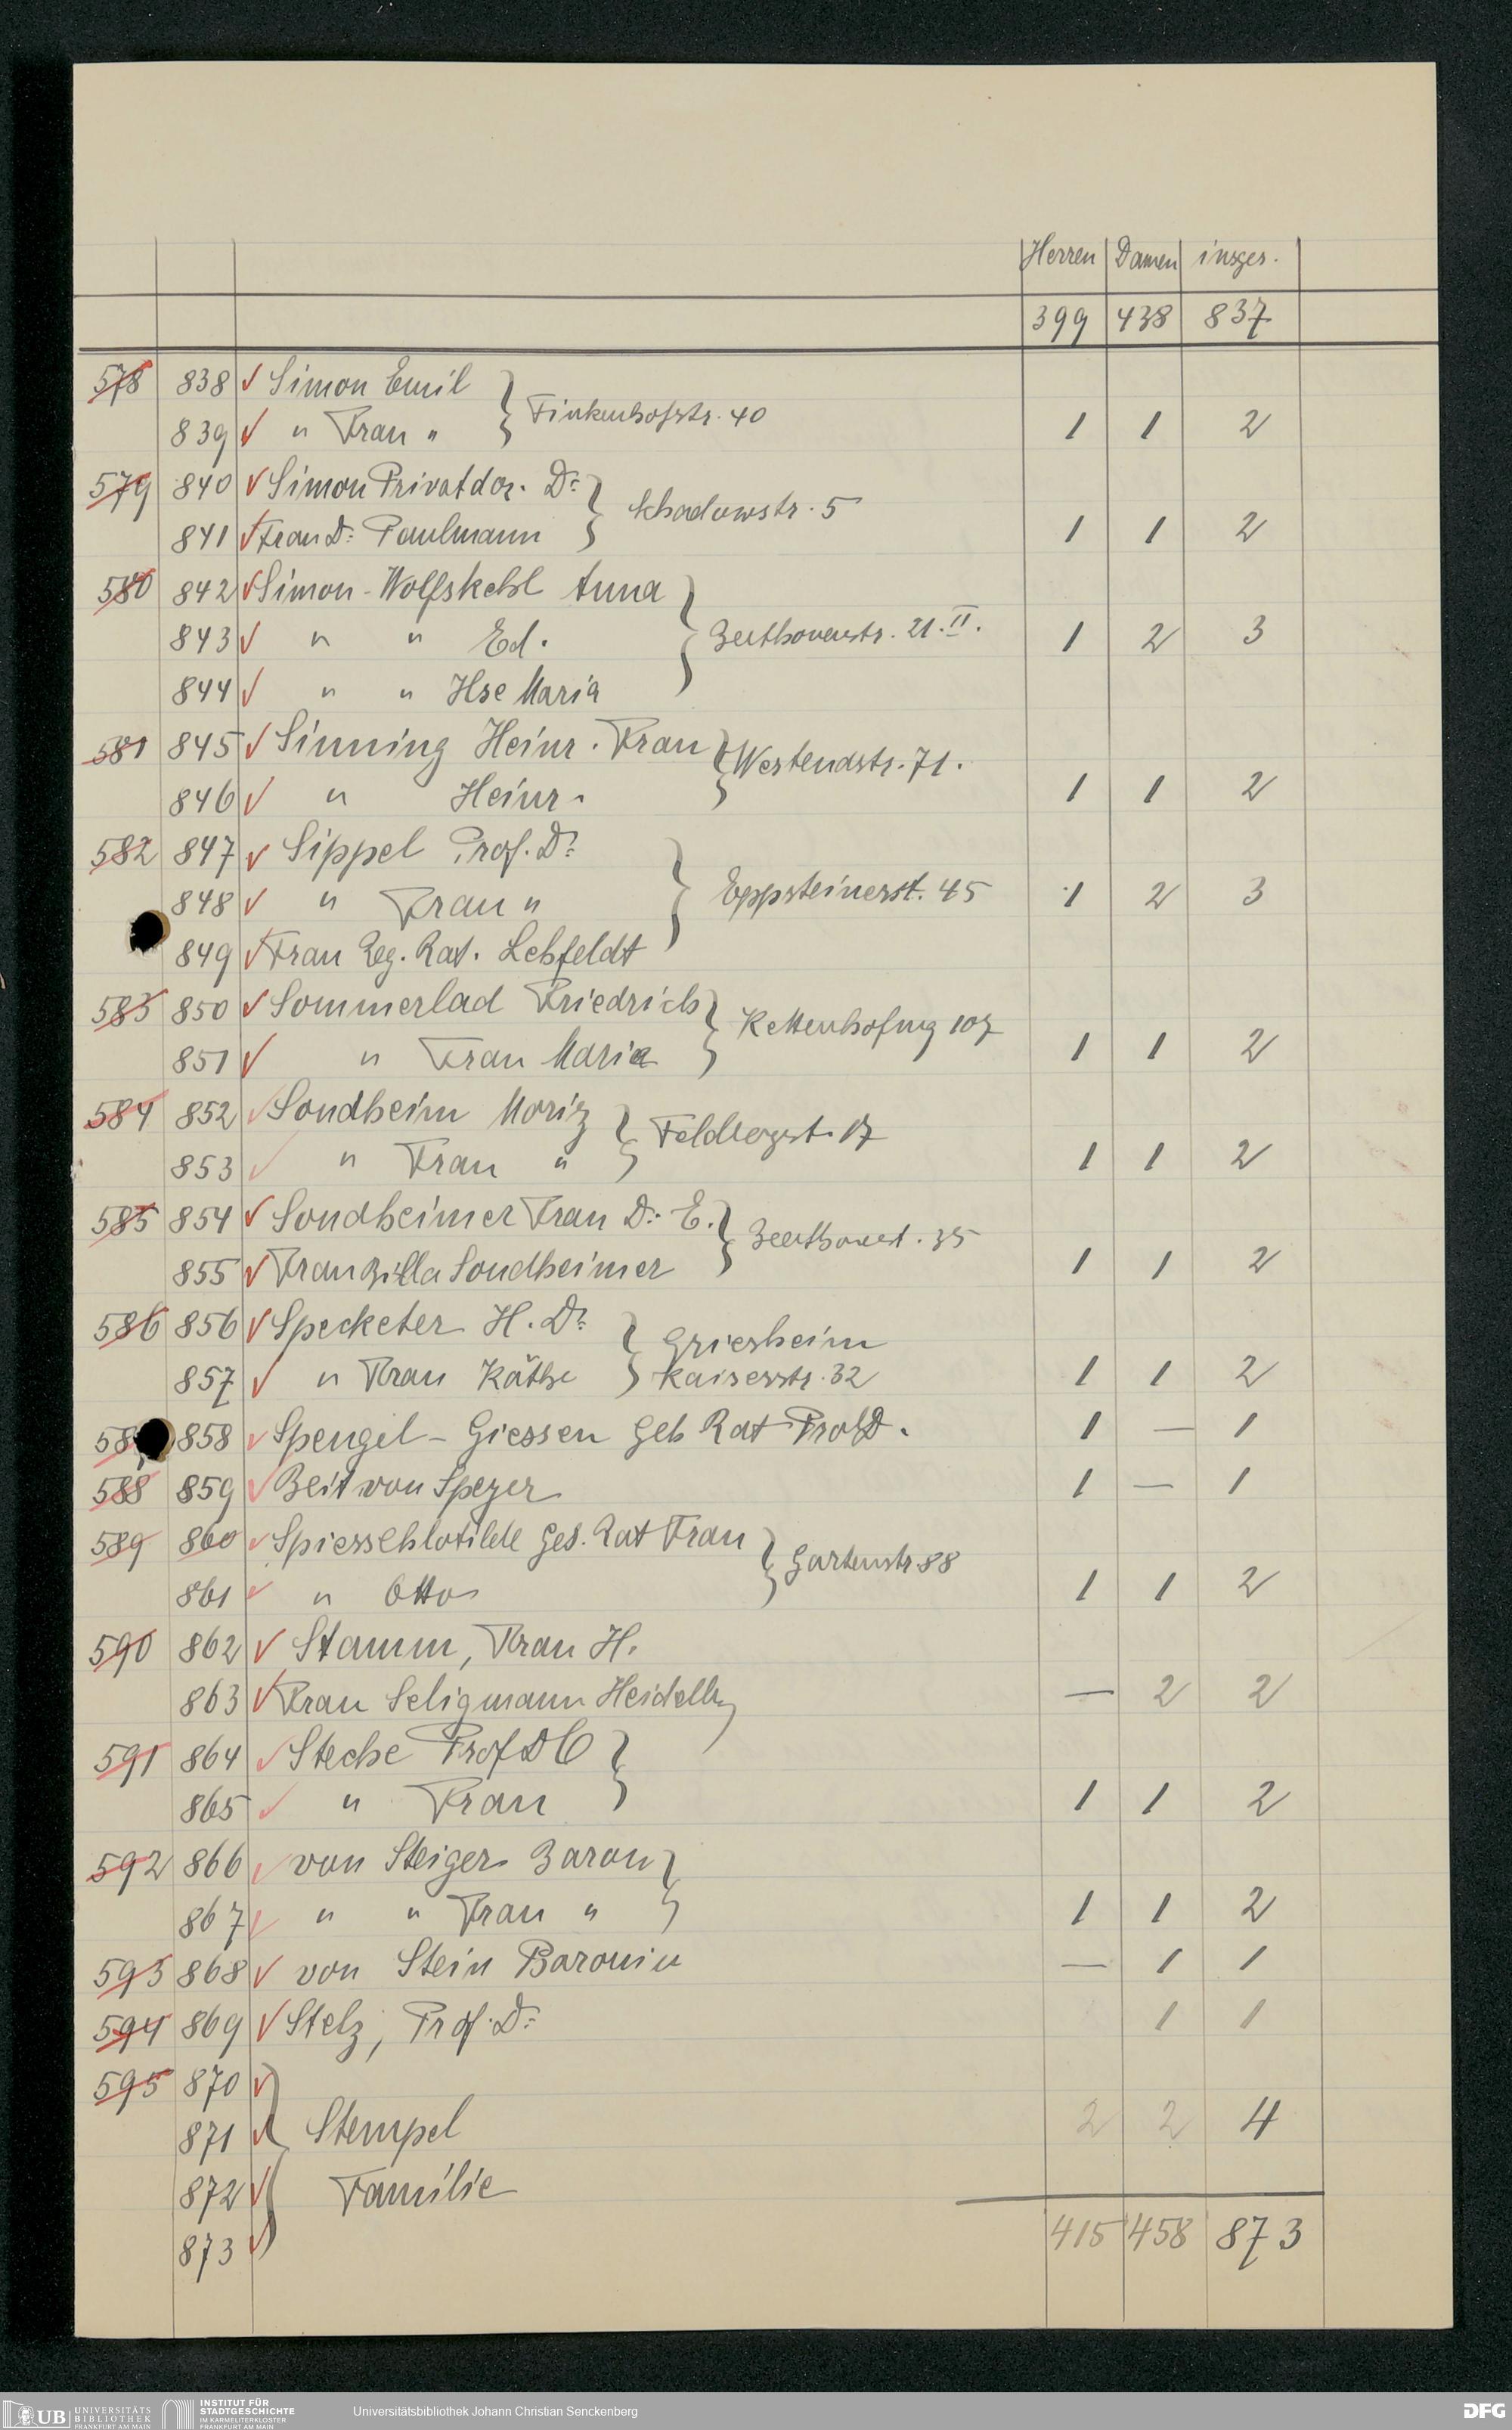 Herren Damen insges.
399 438 837
578 838 Simon Emil
Finkenhofstr. 40
839 " Frau " 1 1 2
579 840 Simon Privatdoz. Dr.
Schadowstr. 5
841 Frau Dr. Paulmann 1 1 2
580 842 Simon-Wolfskehl Anna
843 " " Ed. Beethovenstr. 21. II. 1 2 3
844 " " Ilse Maria
581 845 Sinning Heinr. Frau
Westendstr. 71.
846 " Heinr. 1 1 2
582 847 Sippel Prof. Dr.
848 " Frau " Eppsteinerst. 45 1 2 3
849 Frau Reg. Rat. Lehfeldt
583 850 Sommerlad Friedrich
Kettenhofweg 107
851 " Frau Maria 1 1 2
584 852 Sondheim Moriz
Feldbergst. 17
853 " Frau " 1 1 2
585 854 Sondheimer Frau Dr. E.
Beethovest. 35
855 Frau Billa Sondheimer 1 1 2
586 856 Specketer H. Dr.
Griesheim
857 " Frau Käthe Kaiserstr. 32 1 1 2
858 Spengel - Giessen Geh Rat Prof D. 1 — 1
588 859 Beit von Speyer 1 — 1
589 860 Spiess Chlotilde Geh. Rat Frau
Gartenstr. 88
861 " Otto 1 1 2
590 862 Stamm, Frau H.
863 Frau Seligmann Heidelbg — 2 2
591 864 Steche Prof D O
865 " Frau 1 1 2
592 866 von Steiger Baron
867 " " Frau " 1 1 2
593 868 von Stein Baronin — 1 1
594 869 Stelz, Prof. Dr. 1 1
595 870
871 Stempel 2 2 4
872 Familie
873 415 458 873
UB UNIVERSITÄTS
BIBLIOTHEK
FRANKFURT AM MAIN
INSTITUT FÜR
STADTGESCHICHTE
IM KARMELITERKLOSTER
FRANKFURT AM MAIN
Universitätsbibliothek Johann Christian Senckenberg
DFG